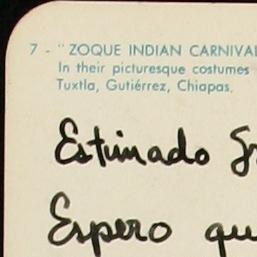 7 - " ZOQUE INDIAN CARNIVAL
In their picturesque costumes
Tuxtla, Gutiérrez, Chiapas.
Estimado
Espero